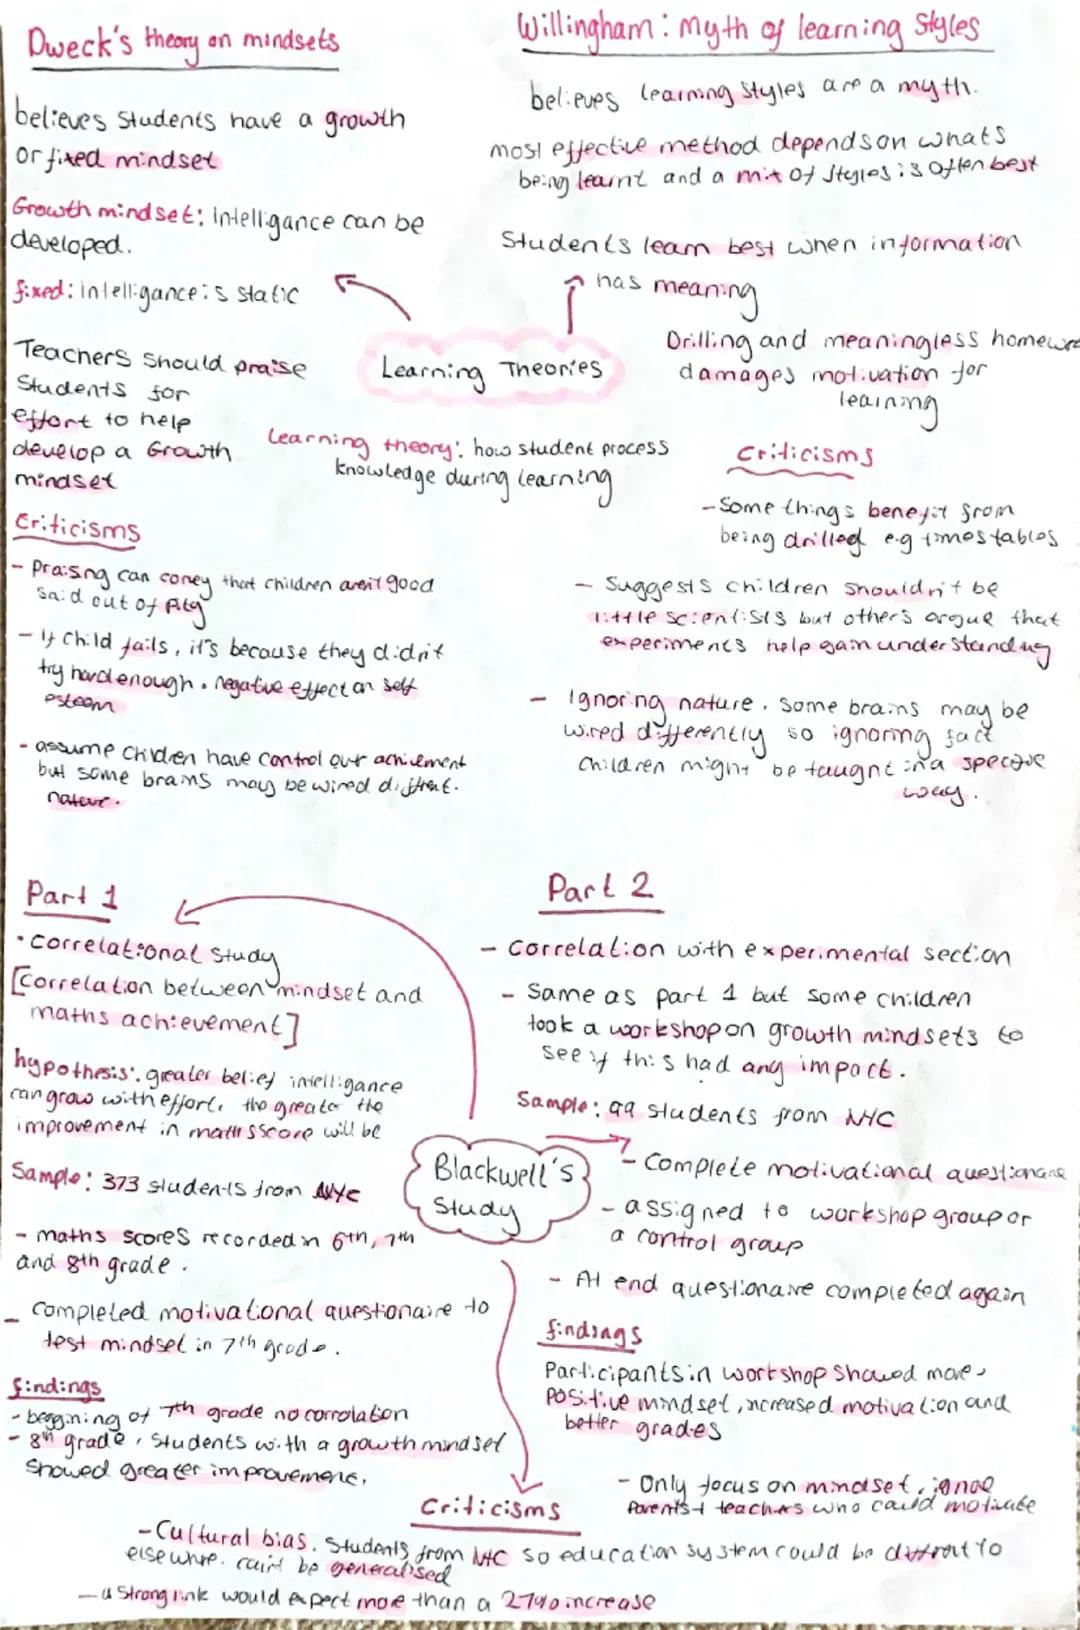 Dweck's theory on mindsets
believes students have a growth
or fixed mindset
Growth mindset: intelligance can be
developed.
fixed: intelligance is static
Teachers should praise
students for
effort to help
develop a Growth
mindset
Criticisms
- Praising can coney that children aren't good
said out of pity
- if child fails, it's because they didn't
try hard enough. negative effect on self
esteem
- assume children have control over achievement
but some brains may be wired diffrent.
nature.
Willingham: Myth of learning Styles
believes learning styles are a myth.
most effective method depends on whats
being learnt and a mix of styles is often best
Students learn best when information
has meaning
Drilling and meaningless homewo
damages motivation for
learning
Criticisms
- Some things benefit from
being drilled e.g times tables
- Suggests children shouldn't be
little scientists but others argue that
experiments help gain understanding
- Ignoring nature. Some brains may be
wired differently so ignoring fact
children might be taught in a specific
way.
Learning Theories
Learning theory: how student process
knowledge during learning
Part 1
• Correlational study
[Correlation between mindset and
maths achievement]
hypothesis: greater belief intelligance
can grow with effort, the greater the
improvement in maths score will be
Sample: 373 students from NYC
- maths scores recorded in 6th, 7th
and 8th grade.
- completed motivational questionaire to
test mindset in 7th grade.
findings
- beggining of 7th grade no corrolation
- 8th grade, students with a growth mindset
showed greater improvement.
Blackwell's
Study
Part 2
- Correlation with experimental section
- Same as part 1 but some children
took a workshop on growth mindsets to
see if this had any impact.
Sample: 99 students from NYC
- Complete motivational questionaire
- assigned to workshop group or
a control group
- At end questionaire completed again
findings
Participants in workshop showed more
positive mindset, increased motivation and
better grades
Criticisms
- Only focus on mindset, ignore
parents + teachers who could motivate
- Cultural bias. Students from NYC so education system could be diffrent to
elsewhere. can't be generalised
- a strong link would expect more than a 27% increase